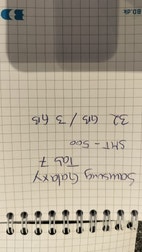 Samsung Galaxy
Tab 7
SMT-500
32 GB / 3 GB